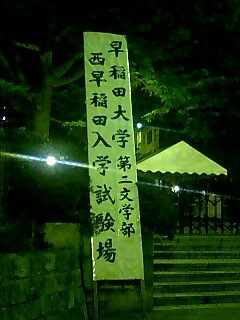 早稲田大学第二文学部
西早稲田入学試験場